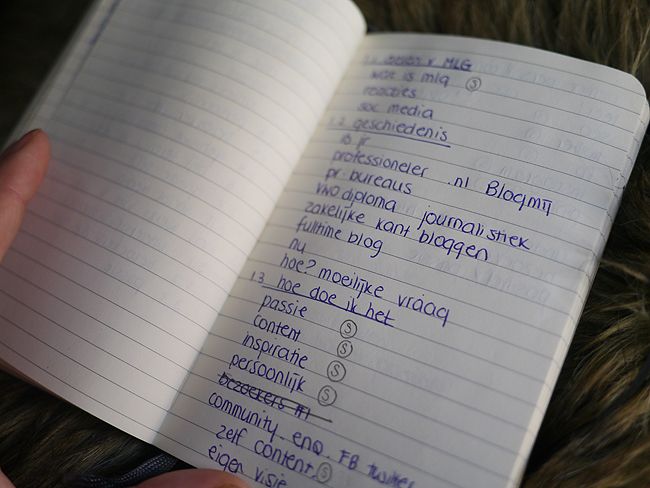 v MLG
wat is mlg Ⓢ
reacties
soc media
1.2 geschiedenis
15 jr
professioneler .nl Blogmij
pr. bureaus
vwo diploma journalistiek
zakelijke kant bloggen
fulltime blog
nu
hoe? moeilijke vraag
1.3 hoe doe ik het
passie Ⓢ
content Ⓢ
inspiratie Ⓢ
persoonlijk Ⓢ
bezoekers
community. enq. FB twitter
zelf content. Ⓢ
eigen visie